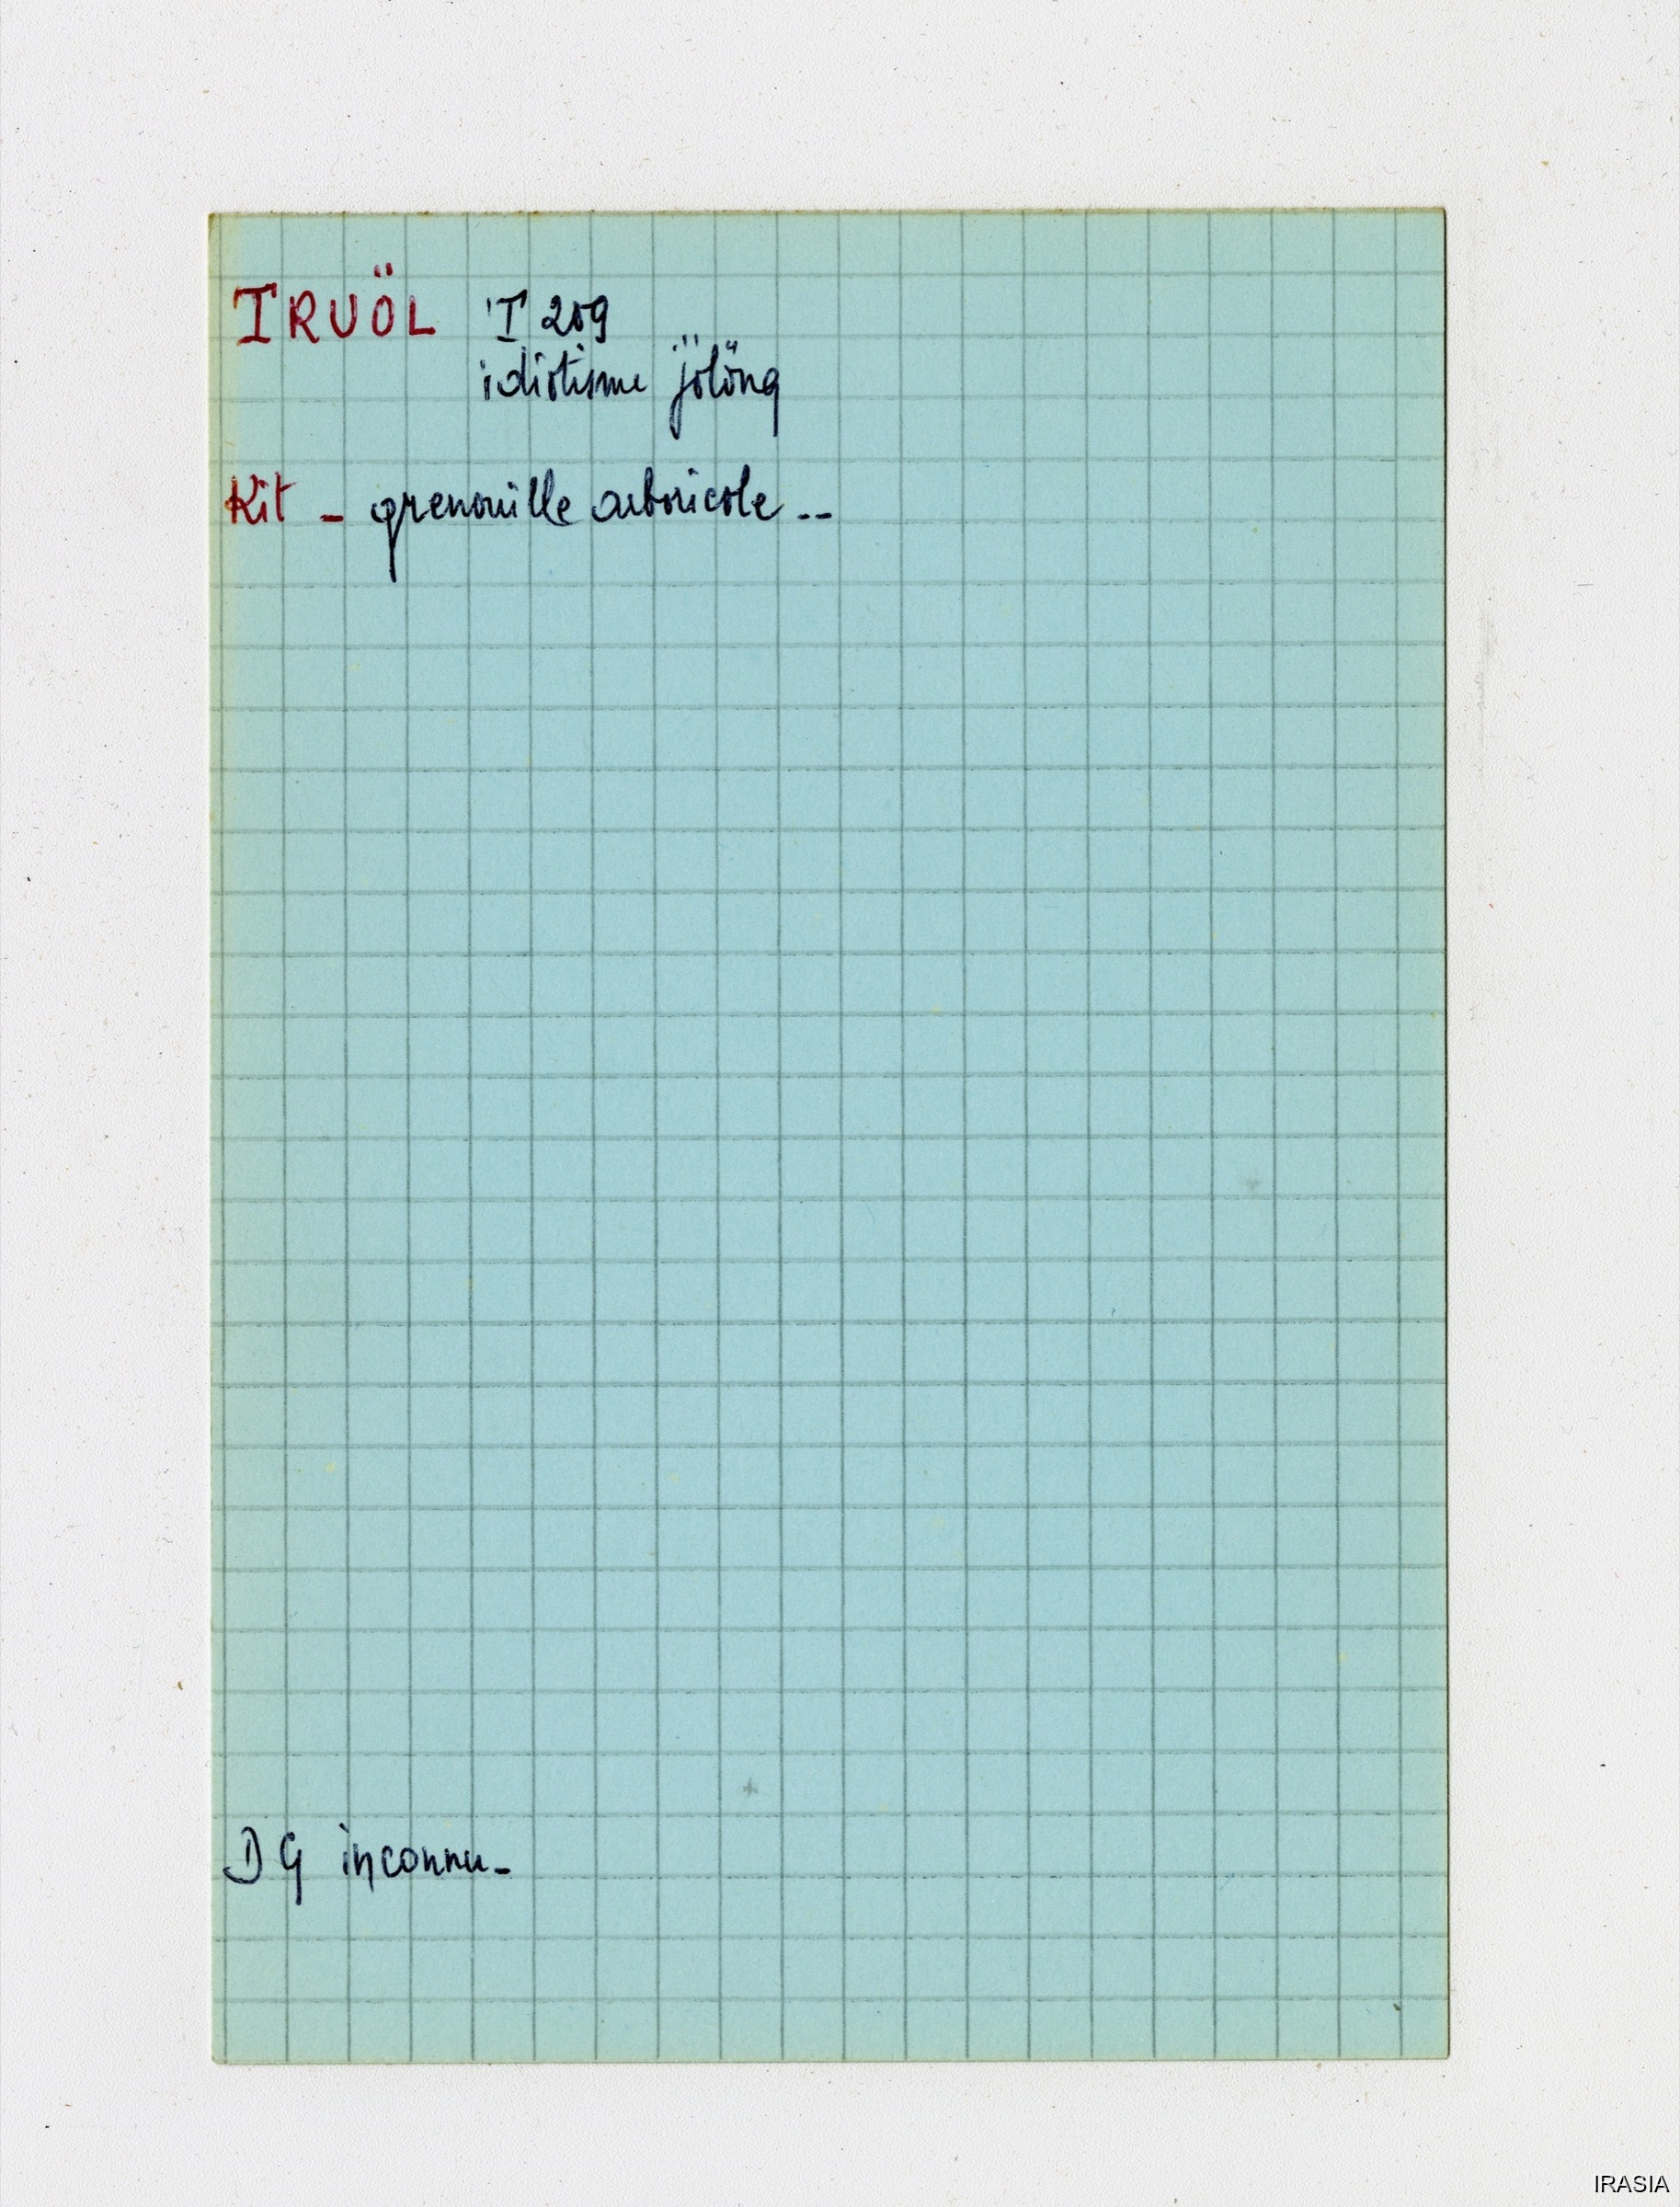 IRUÖL I 209
idiotisme jölöng
Kit - grenouille arboricole --
DG inconnu -
IRASIA